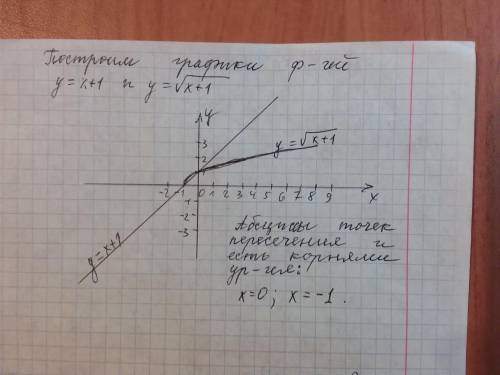 Построим графики ф-гий
y = x+1 и y = √x+1
y
y = √x+1
3
2
1
-2 -1 0 1 2 3 4 5 6 7 8 9 x
-1
-2
-3
y = x+1
Абциссы точек
пересечения и
есть корнями
ур-ия:
x=0; x = -1.